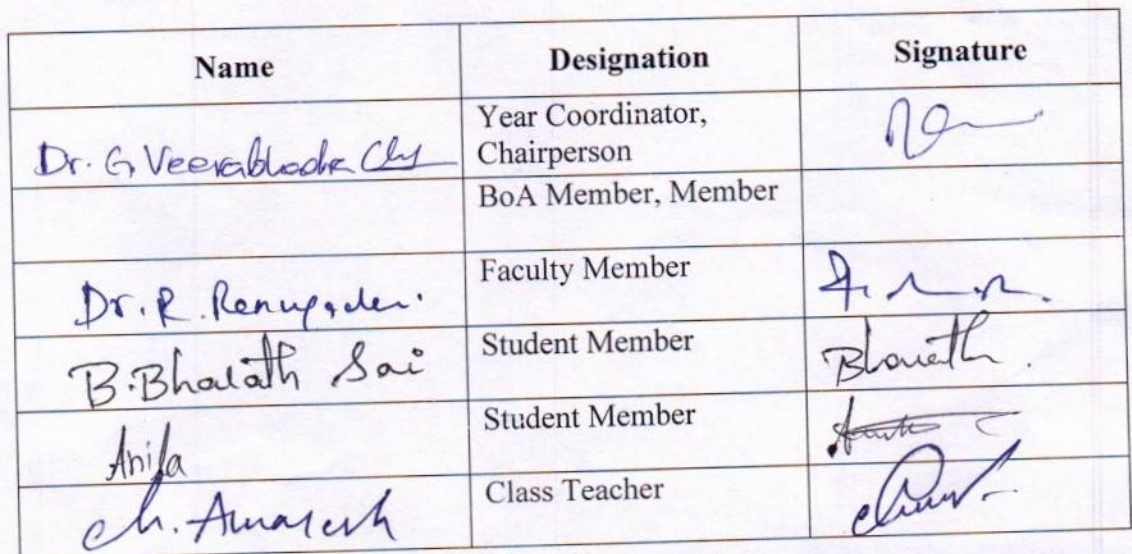 Name Designation Signature
Dr. G Veerabhadra Chy Year Coordinator,
Chairperson
BoA Member, Member
Dr. R. Renugadevi. Faculty Member
B. Bharath Sai Student Member Bharath.
Anifa Student Member
Ch. Amaresh Class Teacher